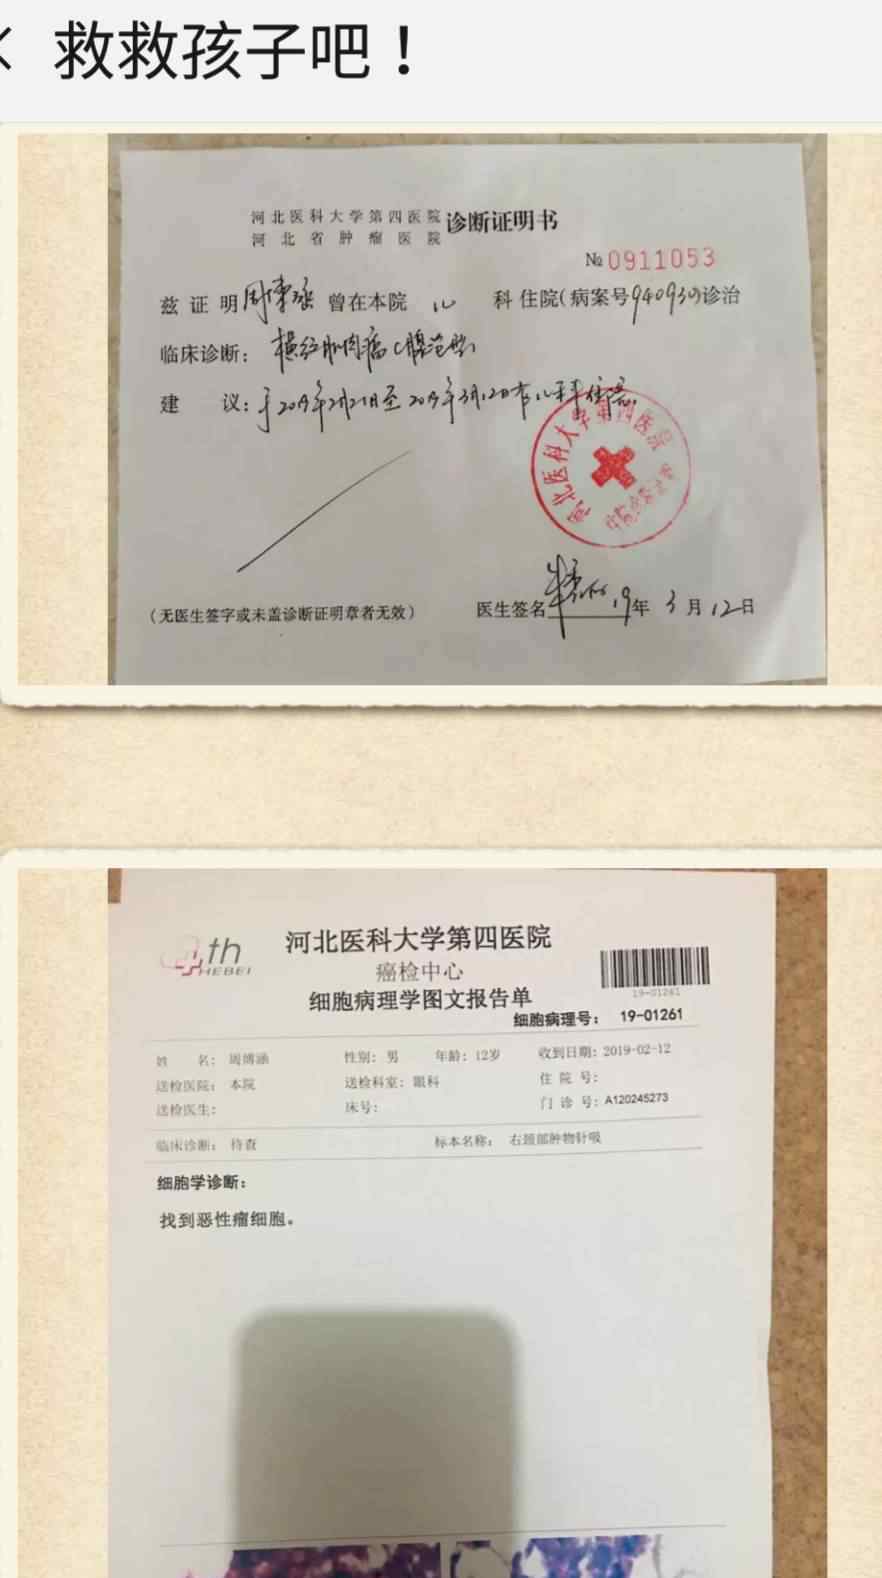 救救孩子吧！
河北医科大学第四医院
河北省肿瘤医院
诊断证明书
№ 0911053
兹证明周傅涵 曾在本院 儿 科住院(病案号940930)诊治
临床诊断: 横纹肌肉瘤
建 议: 于2019年2月21日至2019年3月12日在儿科住院.
河北医科大学第四医院
(无医生签字或未盖诊断证明章者无效)
医生签名 19年 3月12日
4th
HEBEI
河北医科大学第四医院
癌检中心
细胞病理学图文报告单
19-01261
细胞病理号: 19-01261
姓 名: 周傅涵 性别: 男 年龄: 12岁 收到日期: 2019-02-12
送检医院: 本院 送检科室: 眼科 住 院 号:
送检医生: 床号: 门 诊 号: A120245273
临床诊断: 待查 标本名称: 右颈部肿物针吸
细胞学诊断:
找到恶性瘤细胞。